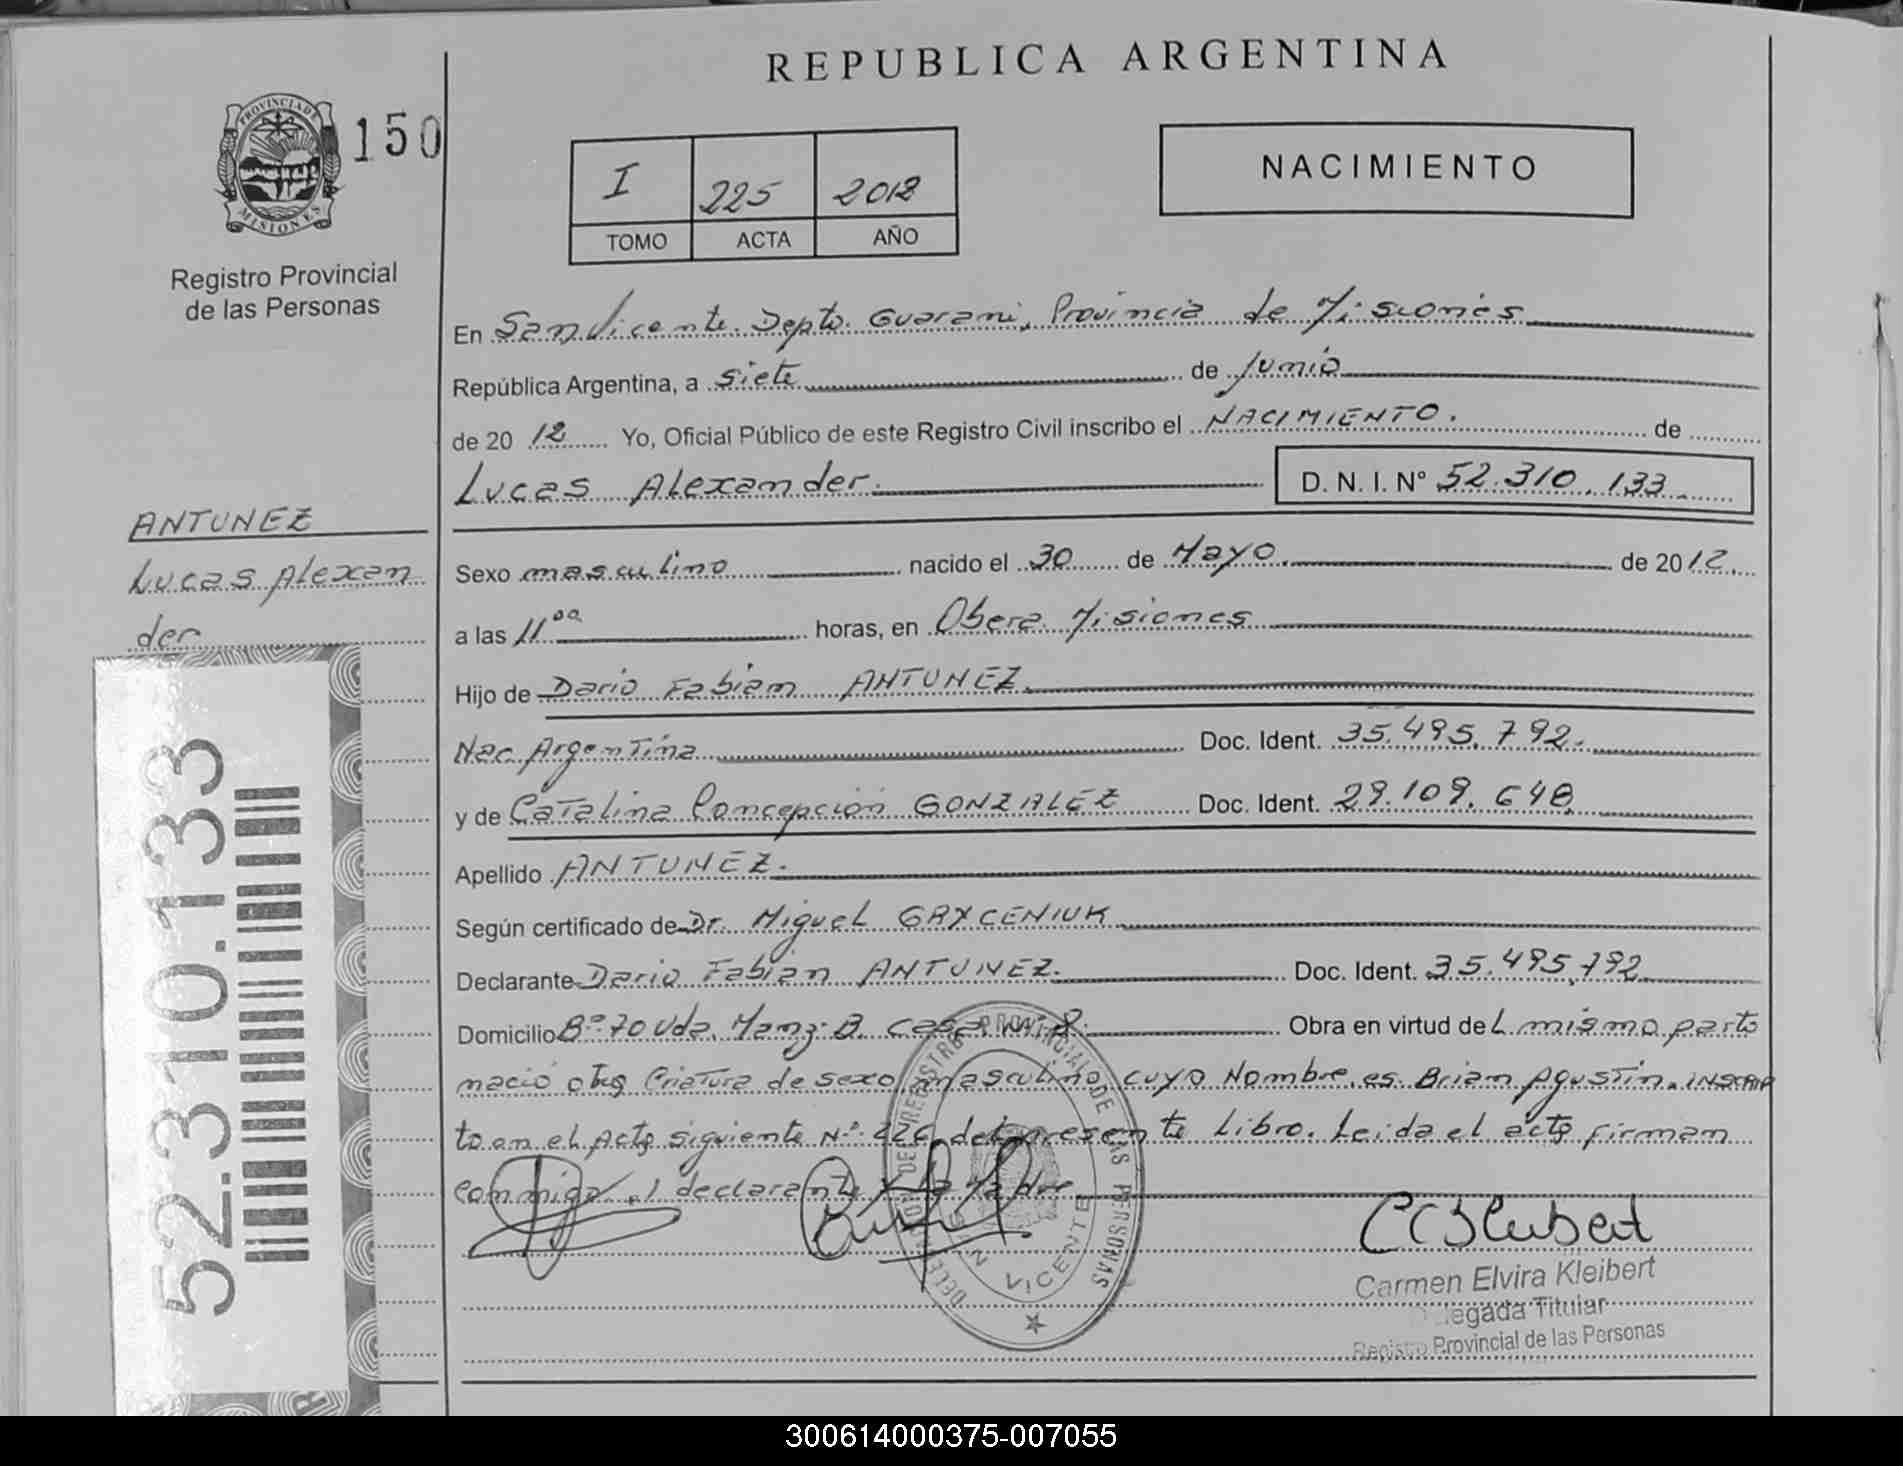 REPUBLICA ARGENTINA
PROVINCIA DE
MISIONES
150
Registro Provincial
de las Personas
I 225 2012
TOMO ACTA AÑO
NACIMIENTO
En San Vicente Depto. Guarani, Provincia de Misiones
República Argentina, a siete de Junio
de 2012 Yo, Oficial Público de este Registro Civil inscribo el NACIMIENTO. de
Lucas Alexander. D. N. I. N° 52.310.133
ANTUNEZ
Lucas Alexan
der
Sexo masculino nacido el 30 de Mayo de 2012.
a las 11 00 horas, en Obera Misiones
Hijo de Dario Fabian ANTUNEZ.
Nac. Argentina Doc. Ident. 35.495.792.
y de Catalina Concepción GONZALEZ Doc. Ident. 29.109.648
Apellido ANTUNEZ.
Según certificado de Dr. Miguel GRYCENIUK
Declarante Dario Fabian ANTUNEZ. Doc. Ident. 35.495.792
Domicilio B° 70 Vda. Manz. B. Casa N° 8. Obra en virtud del mismo parto
nació otra Criatura de sexo masculino, cuyo Nombre es Brian Agustin, inscrip
to en el Acta siguiente N° 226 del presente Libro. Leida el acta firman
conmigo, declarante y la Madre
52.310.133
DELEGACION DE REGISTRO PROVINCIAL DE LAS PERSONAS
SAN VICENTE
Carmen Elvira Kleibert
Delegada Titular
Registro Provincial de las Personas
300614000375-007055